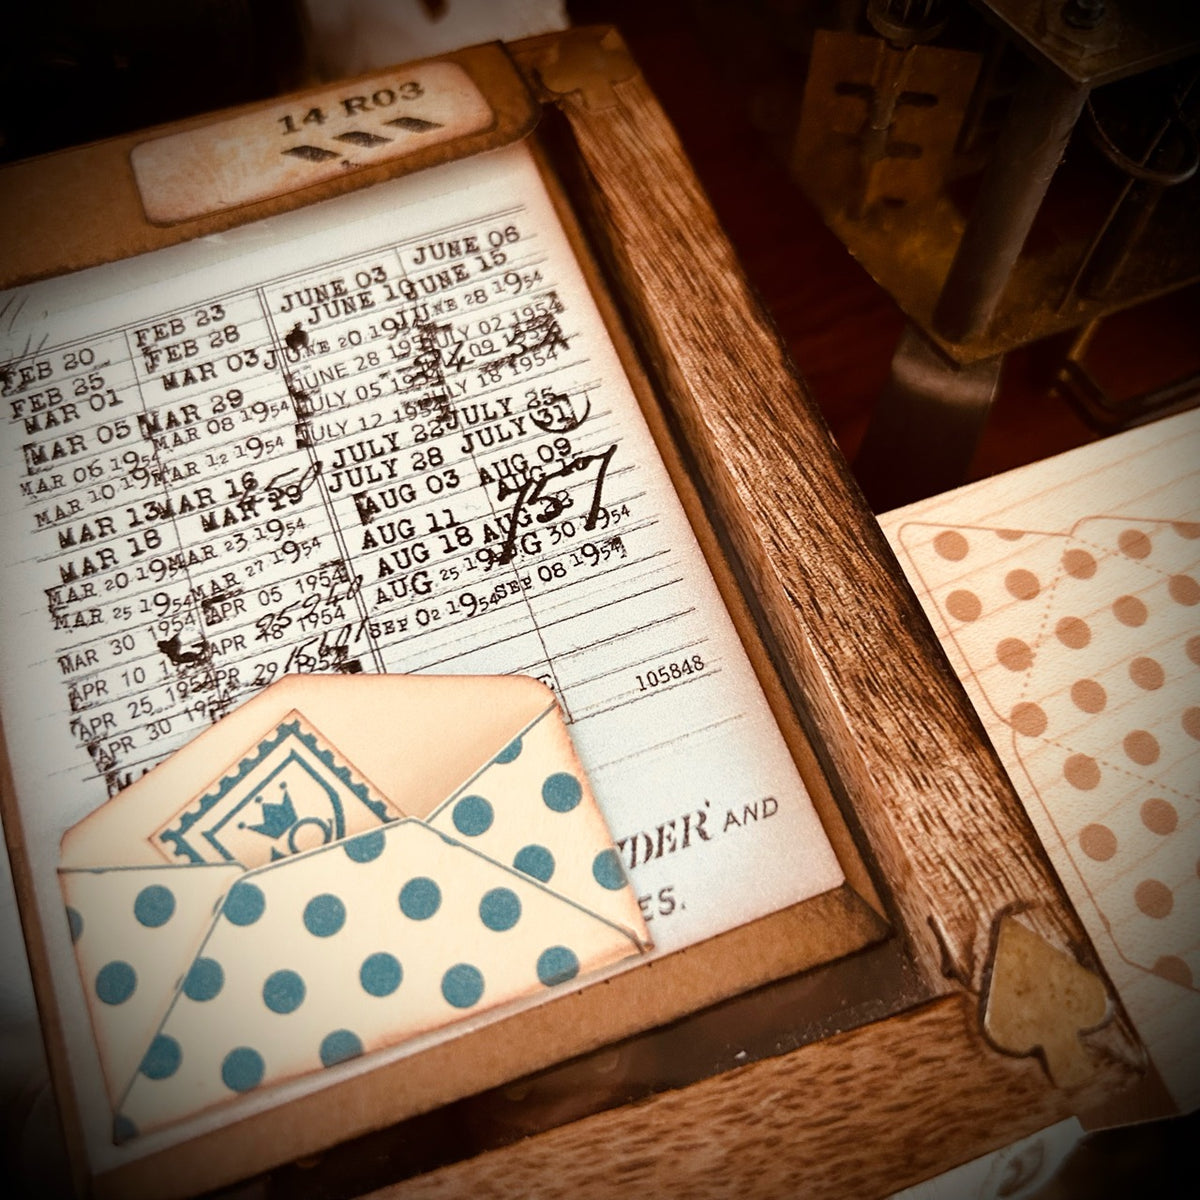 14 R03
FEB 20
FEB 25
MAR 01
MAR 05
MAR 06 1954
MAR 10 1954
MAR 13
MAR 18
MAR 20 1954
MAR 25 1954
MAR 30 1954
APR 10
APR 25 1954
APR 30 195
FEB 23
FEB 28
MAR 03
MAR 29
MAR 08 1954
MAR 12 1954
MAR 16
MAR 29
MAR 23 1954
MAR 27 1954
APR 05 1954
APR 18 1954
APR 29 1954
JUNE 03
JUNE 10
JUNE 20 19
JUNE 28 195
JULY 05 195
JULY 12 1954
JULY 22
JULY 28
AUG 03
AUG 11
AUG 18
AUG 25 19
SEP 02 1954
JUNE 06
JUNE 15
JUNE 28 1954
JULY 02 1954
09
JULY 18 1954
JULY 25
JULY 31
AUG 09
AUG
757
AUG
AUG 30 1954
SEP 08 1954
105848
DER AND
ES.